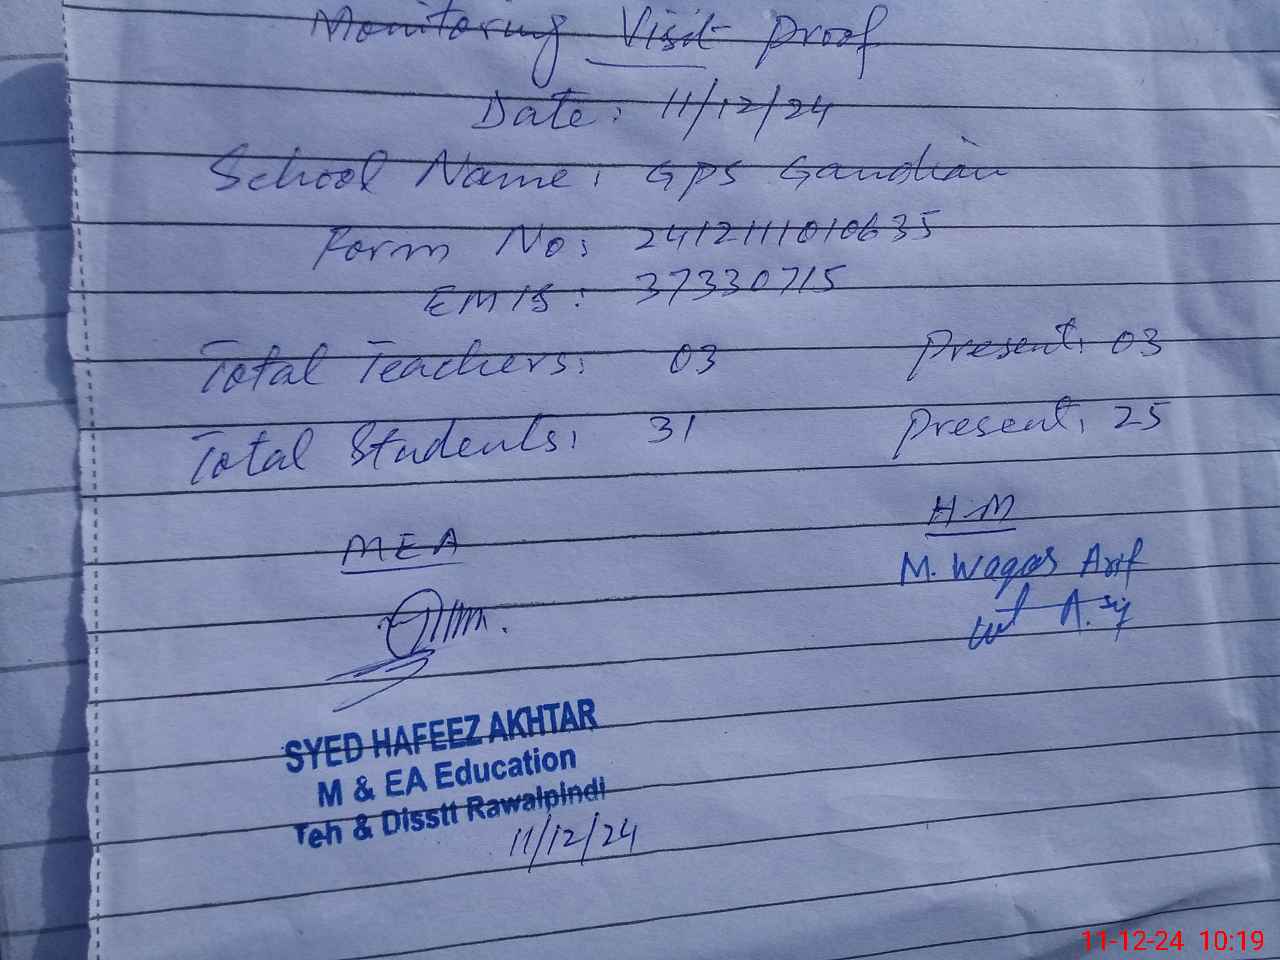 Monitoring Visit Proof
Date: 11/12/24
School Name: GPS Gandian
Form No: 2412111010635
EMIS: 37330715
Total Teachers: 03 Present: 03
Total Students: 31 Present: 25
MEA H.M
M. Waqas Arif
SYED HAFEEZ AKHTAR
M & EA Education
Teh & Disstt Rawalpindi
11/12/24
11-12-24 10:19